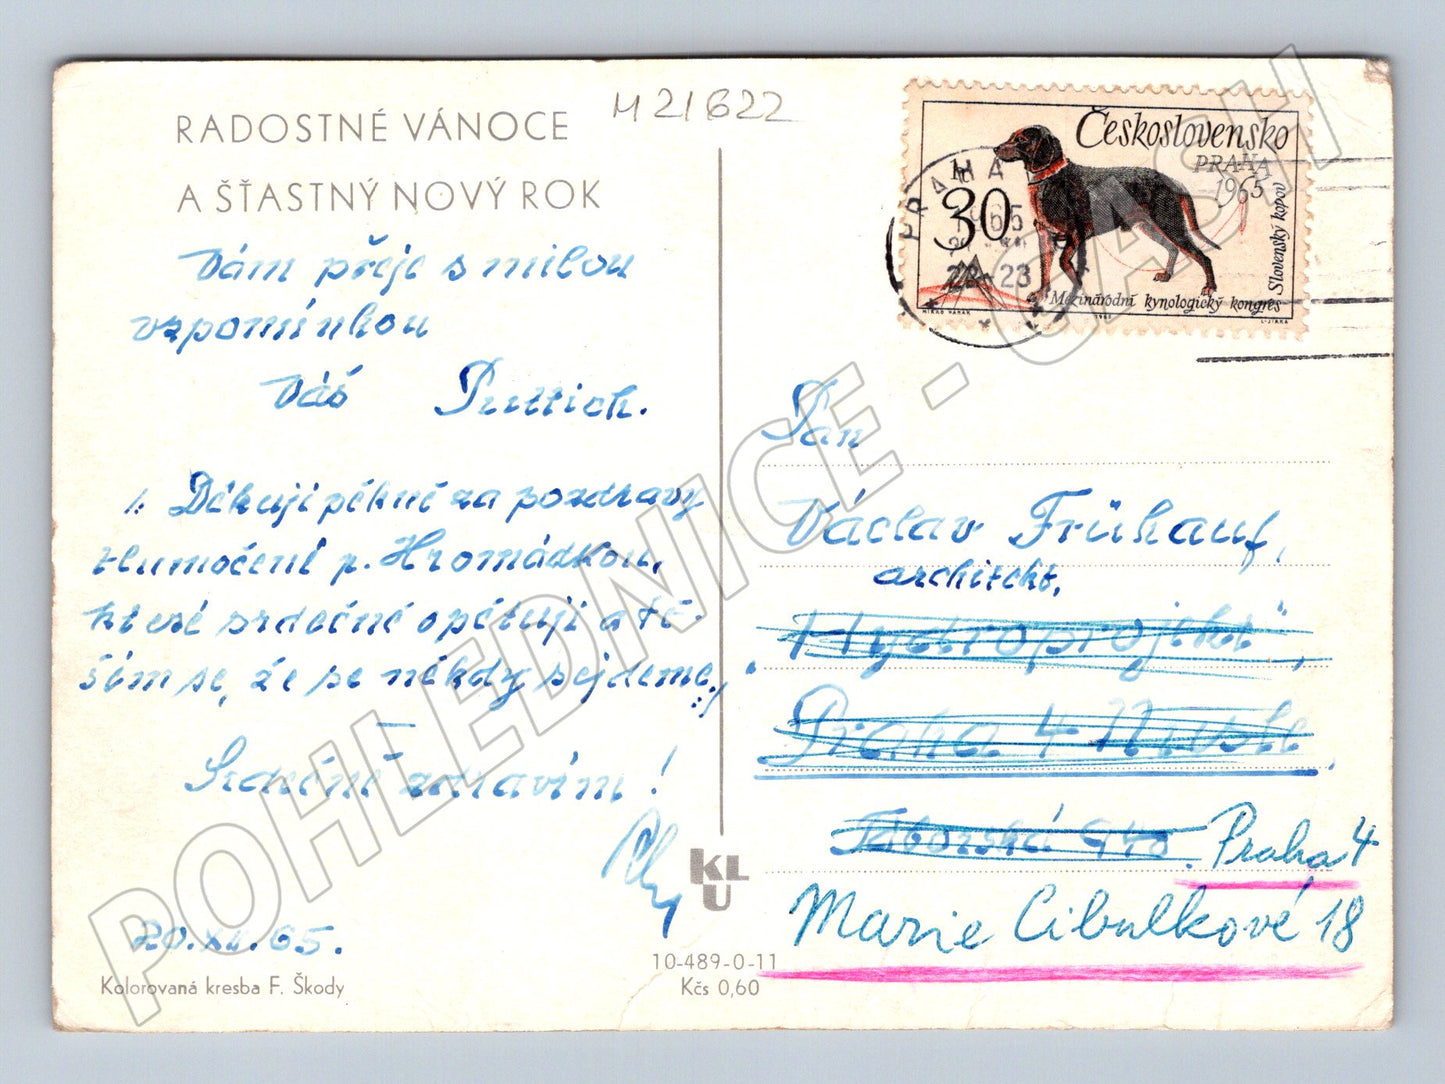 RADOSTNÉ VÁNOCE
A ŠŤASTNÝ NOVÝ ROK
M 21622
Vám přeje s milou
vzpomínkou
Váš Puttich.
/: Děkuji pěkně za pozdravy
tlumočení p. Hromádkou,
které srdečně opětuji a tě-
ším se, že se někdy sejdeme, :/
Srdečně zdravím!
20.XII.65.
Kolorovaná kresba F. Škody
KLU
10-489-0-11
Kčs 0,60
Československo
PRAHA
1965
30
H
Slovenský kopov
Mezinárodní kynologický kongres
MIRKO VANĚK
1965
L-JIRKA
PRAHA
1965
22-23
Pan
Václav Frühauf,
architekt,
"Hydroprojekt",
Praha 4 Nusle
Táborská 940. Praha 4
Marie Cibulkové 18
POHLEDNICE - CASH